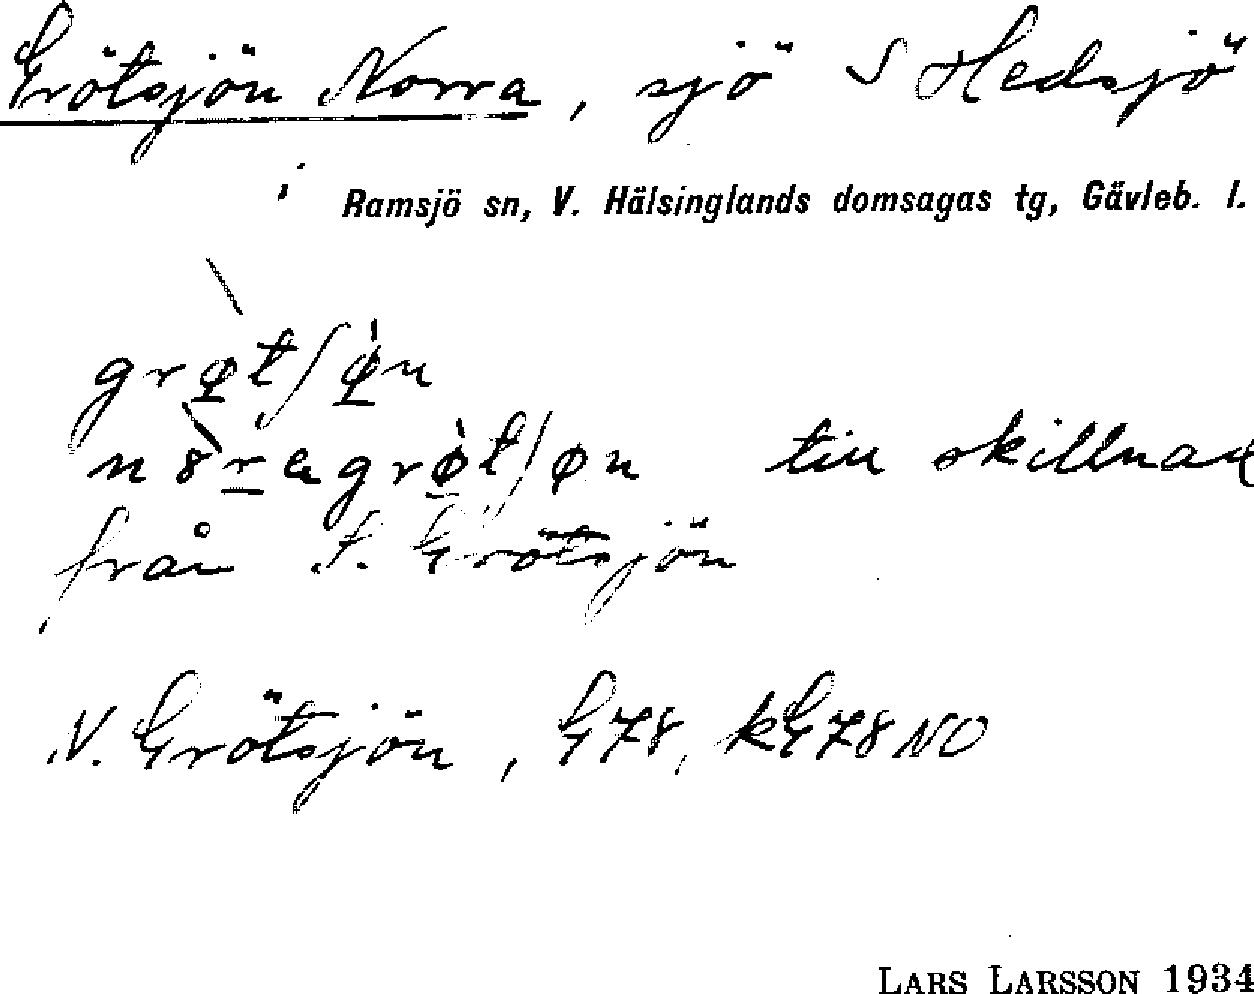 Grötsjön Norra, sjö S Hedsjö
i Ramsjö sn, V. Hälsinglands domsagas tg, Gävleb. l.
grø̱t/ø̱̀n
till skillnad
från S. Grötsjön
N. Grötsjön, G78, kG78NO
LARS LARSSON 1934